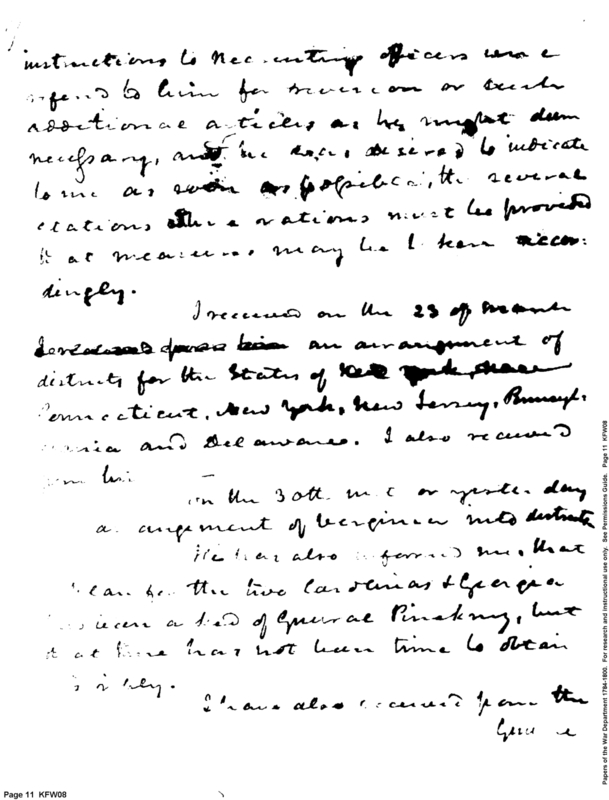 instructions to Recruiting officers were
referred to him for revision or such
additional articles as he might deem
necessary, and he was desired to indicate
to me as soon as possible, the several
stations where rations must be provided
that measures may be taken accor:
dingly.
I received on the 23 of March
an arrangement of
districts for the States of
Connecticut, New York, New Jersey, Pennsyl:
vania and Delaware. I also received
from him
on the 30th inst or yesterday
arrangement of Verginia into districts
He has also informed me, that
plan for the two Carolinas & Georgia
has been asked of General Pinckney, but
that there has not been time to obtain
his reply.
I have also received from the
General
Page 11 KFW08
Papers of the War Department 1784-1800. For research and instructional use only. See Permissions Guide. Page 11 KFW08